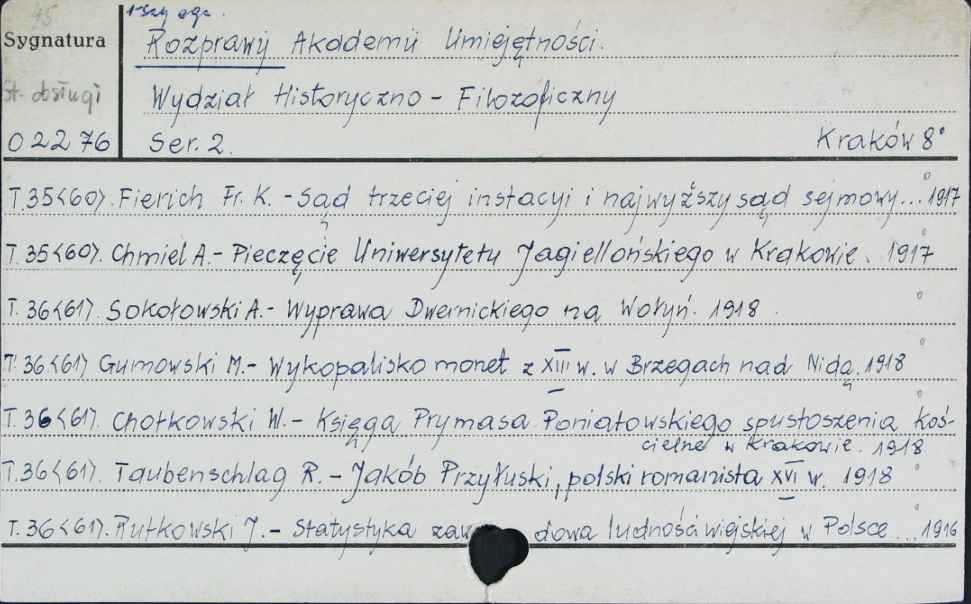 45
1-szy egz.
Sygnatura
Rozprawy Akademii Umiejętności.
St. obsługi
Wydział Historyczno - Filozoficzny
02276
Ser. 2.
Kraków 8°
T. 35<60>. Fierich Fr. K. - Sąd trzeciej instacyi i najwyższy sąd sejmowy... 1917
T. 35<60>. Chmiel A. - Pieczęcie Uniwersytetu Jagiellońskiego w Krakowie. 1917
T. 36<61>. Sokołowski A. - Wyprawa Dwernickiego na Wołyń. 1918
T. 36<61> Gumowski M. - Wykopalisko monet z XIII w. w Brzegach nad Nidą. 1918
T. 36<61>. Chotkowski W. - Księga Prymasa Poniatowskiego spustoszenia koś-
cielne w Krakowie. 1918
T. 36<61>. Taubenschlag R. - Jakób Przyłuski, polski romanista XVI w. 1918
T. 36<61>. Rutkowski J. - Statystyka zaw dowa ludności wiejskiej w Polsce ... 1916